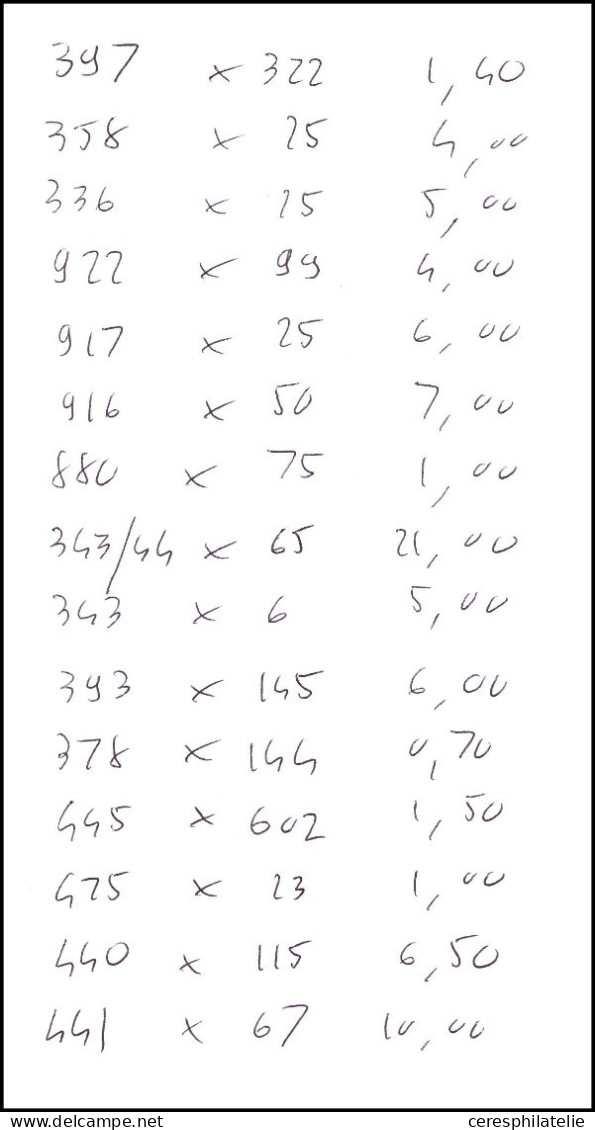 397 x 322 1,40
358 x 25 4,00
336 x 25 5,00
922 x 99 4,00
917 x 25 6,00
916 x 50 7,00
880 x 75 1,00
343/44 x 65 21,00
343 x 6 5,00
393 x 145 6,00
378 x 144 0,70
445 x 602 1,50
475 x 23 1,00
440 x 115 6,50
441 x 67 10,00
www.delcampe.net ceresphilatelie